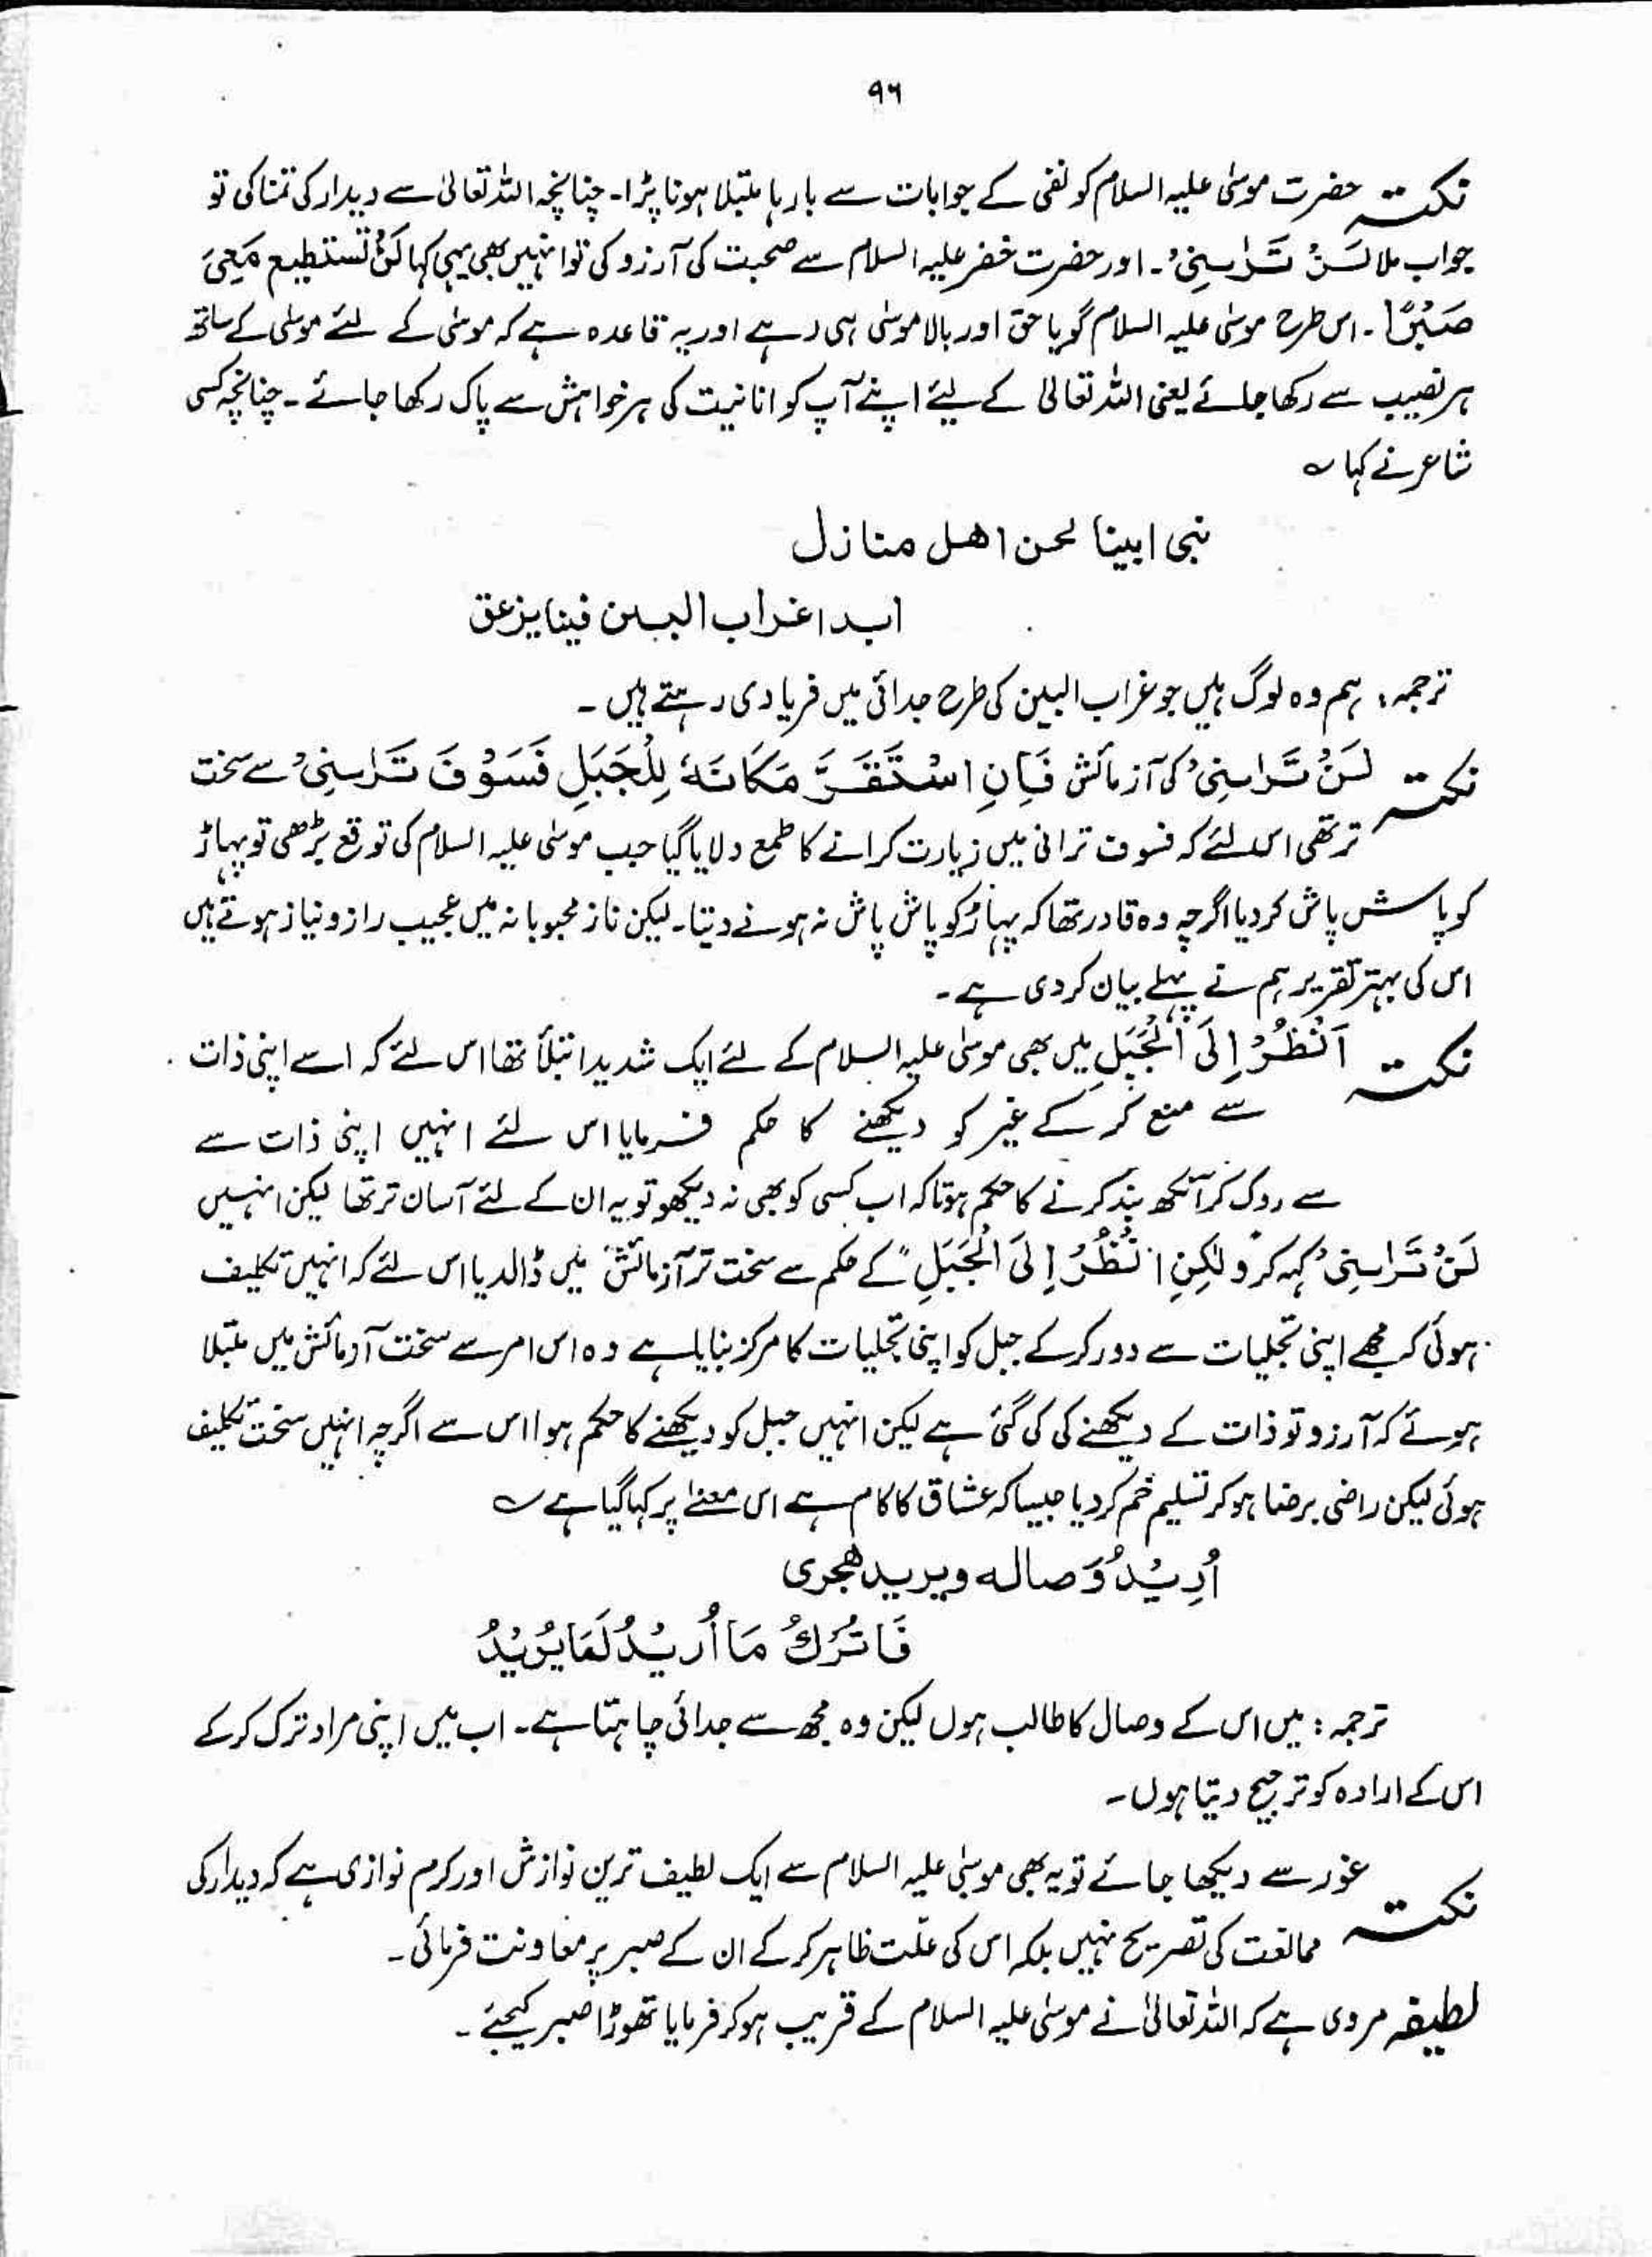 ۹۶
نکتہ حضرت موسیٰ علیہ السلام کو نفی کے جوابات سے بارہا مبتلا ہونا پڑا۔ چنانچہ اللہ تعالیٰ سے دیدار کی تمنا کی تو
جواب ملا لَنْ تَرَانِیْ۔ اور حضرت خضر علیہ السلام سے صحبت کی آرزو کی تو انہیں بھی یہی کہا لَنْ تستطیع مَعِیَ
صَبْرًا۔ اس طرح موسیٰ علیہ السلام گویا حق اور بالا موسیٰ ہی رہے اور یہ قاعدہ ہے کہ موسیٰ کے لئے موسیٰ کے ساتھ
ہر نصیب سے رکھا جائے یعنی اللہ تعالیٰ کے لیئے اپنے آپ کو انانیت کی ہر خواہش سے پاک رکھا جائے۔ چنانچہ کسی
شاعر نے کہا ؎
نبی ابینا نحن اھل منازل
ابدا غراب البین فینا یزعق
ترجمہ: ہم وہ لوگ ہیں جو غراب البین کی طرح جدائی میں فریادی رہتے ہیں۔
نکتہ لَنْ تَرَانِیْ کی آزمائش فَاِنِ اسْتَقَرَّ مَکَانَهٗ لِلْجَبَلِ فَسَوْفَ تَرَانِیْ سے سخت
تر تھی اس لئے کہ فسوف ترانی میں زیارت کرانے کا طمع دلایا گیا جب موسیٰ علیہ السلام کی توقع بڑھی تو پہاڑ
کو پاش پاش کر دیا اگرچہ وہ قادر تھا کہ پہاڑ کو پاش پاش نہ ہونے دیتا۔ لیکن ناز محبوبانہ میں عجیب راز و نیاز ہوتے ہیں
اس کی بہتر تقریر ہم نے پہلے بیان کر دی ہے۔
نکتہ اَنْظُرْ اِلَی الْجَبَلِ میں بھی موسیٰ علیہ السلام کے لئے ایک شدید ابتلأ تھا اس لئے کہ اسے اپنی ذات
سے منع کر کے غیر کو دیکھنے کا حکم فرمایا اس لئے انہیں اپنی ذات سے
سے روک کر آنکھ بند کرنے کا حکم ہوتا کہ اب کسی کو بھی نہ دیکھو تو یہ ان کے لئے آسان تر تھا لیکن انہیں
لَنْ تَرَانِیْ کہہ کر وَلٰکِنِ انْظُرْ اِلَی الْجَبَلِ" کے حکم سے سخت تر آزمائش میں ڈالدیا اس لئے کہ انہیں تکلیف
ہوئی کہ مجھے اپنی تجلیات سے دور کر کے جبل کو اپنی تجلیات کا مرکز بنایا ہے وہ اس امر سے سخت آزمائش میں مبتلا
ہوئے کہ آرزو تو ذات کے دیکھنے کی کی گئی ہے لیکن انہیں جبل کو دیکھنے کا حکم ہوا اس سے اگرچہ انہیں سخت تکلیف
ہوئی لیکن راضی برضا ہو کر تسلیم خم کر دیا جیسا کہ عشاق کا کام ہے اس معنےٰ پر کہا گیا ہے ؎
اُرِیْدُ وَصاله ویرید ھجری
فَاتْرُكُ مَا اُرِیْدُ لَمَا یُرِیْدُ
ترجمہ: میں اس کے وصال کا طالب ہوں لیکن وہ مجھ سے جدائی چاہتا ہے۔ اب میں اپنی مراد ترک کر کے
اس کے ارادہ کو ترجیح دیتا ہوں۔
نکتہ غور سے دیکھا جائے تو یہ بھی موسیٰ علیہ السلام سے ایک لطیف ترین نوازش اور کرم نوازی ہے کہ دیدار کی
ممانعت کی تصریح نہیں بلکہ اس کی علّت ظاہر کر کے ان کے صبر پر معاونت فرمائی۔
لطیفہ مروی ہے کہ اللہ تعالیٰ نے موسیٰ علیہ السلام کے قریب ہو کر فرمایا تھوڑا صبر کیجئے۔